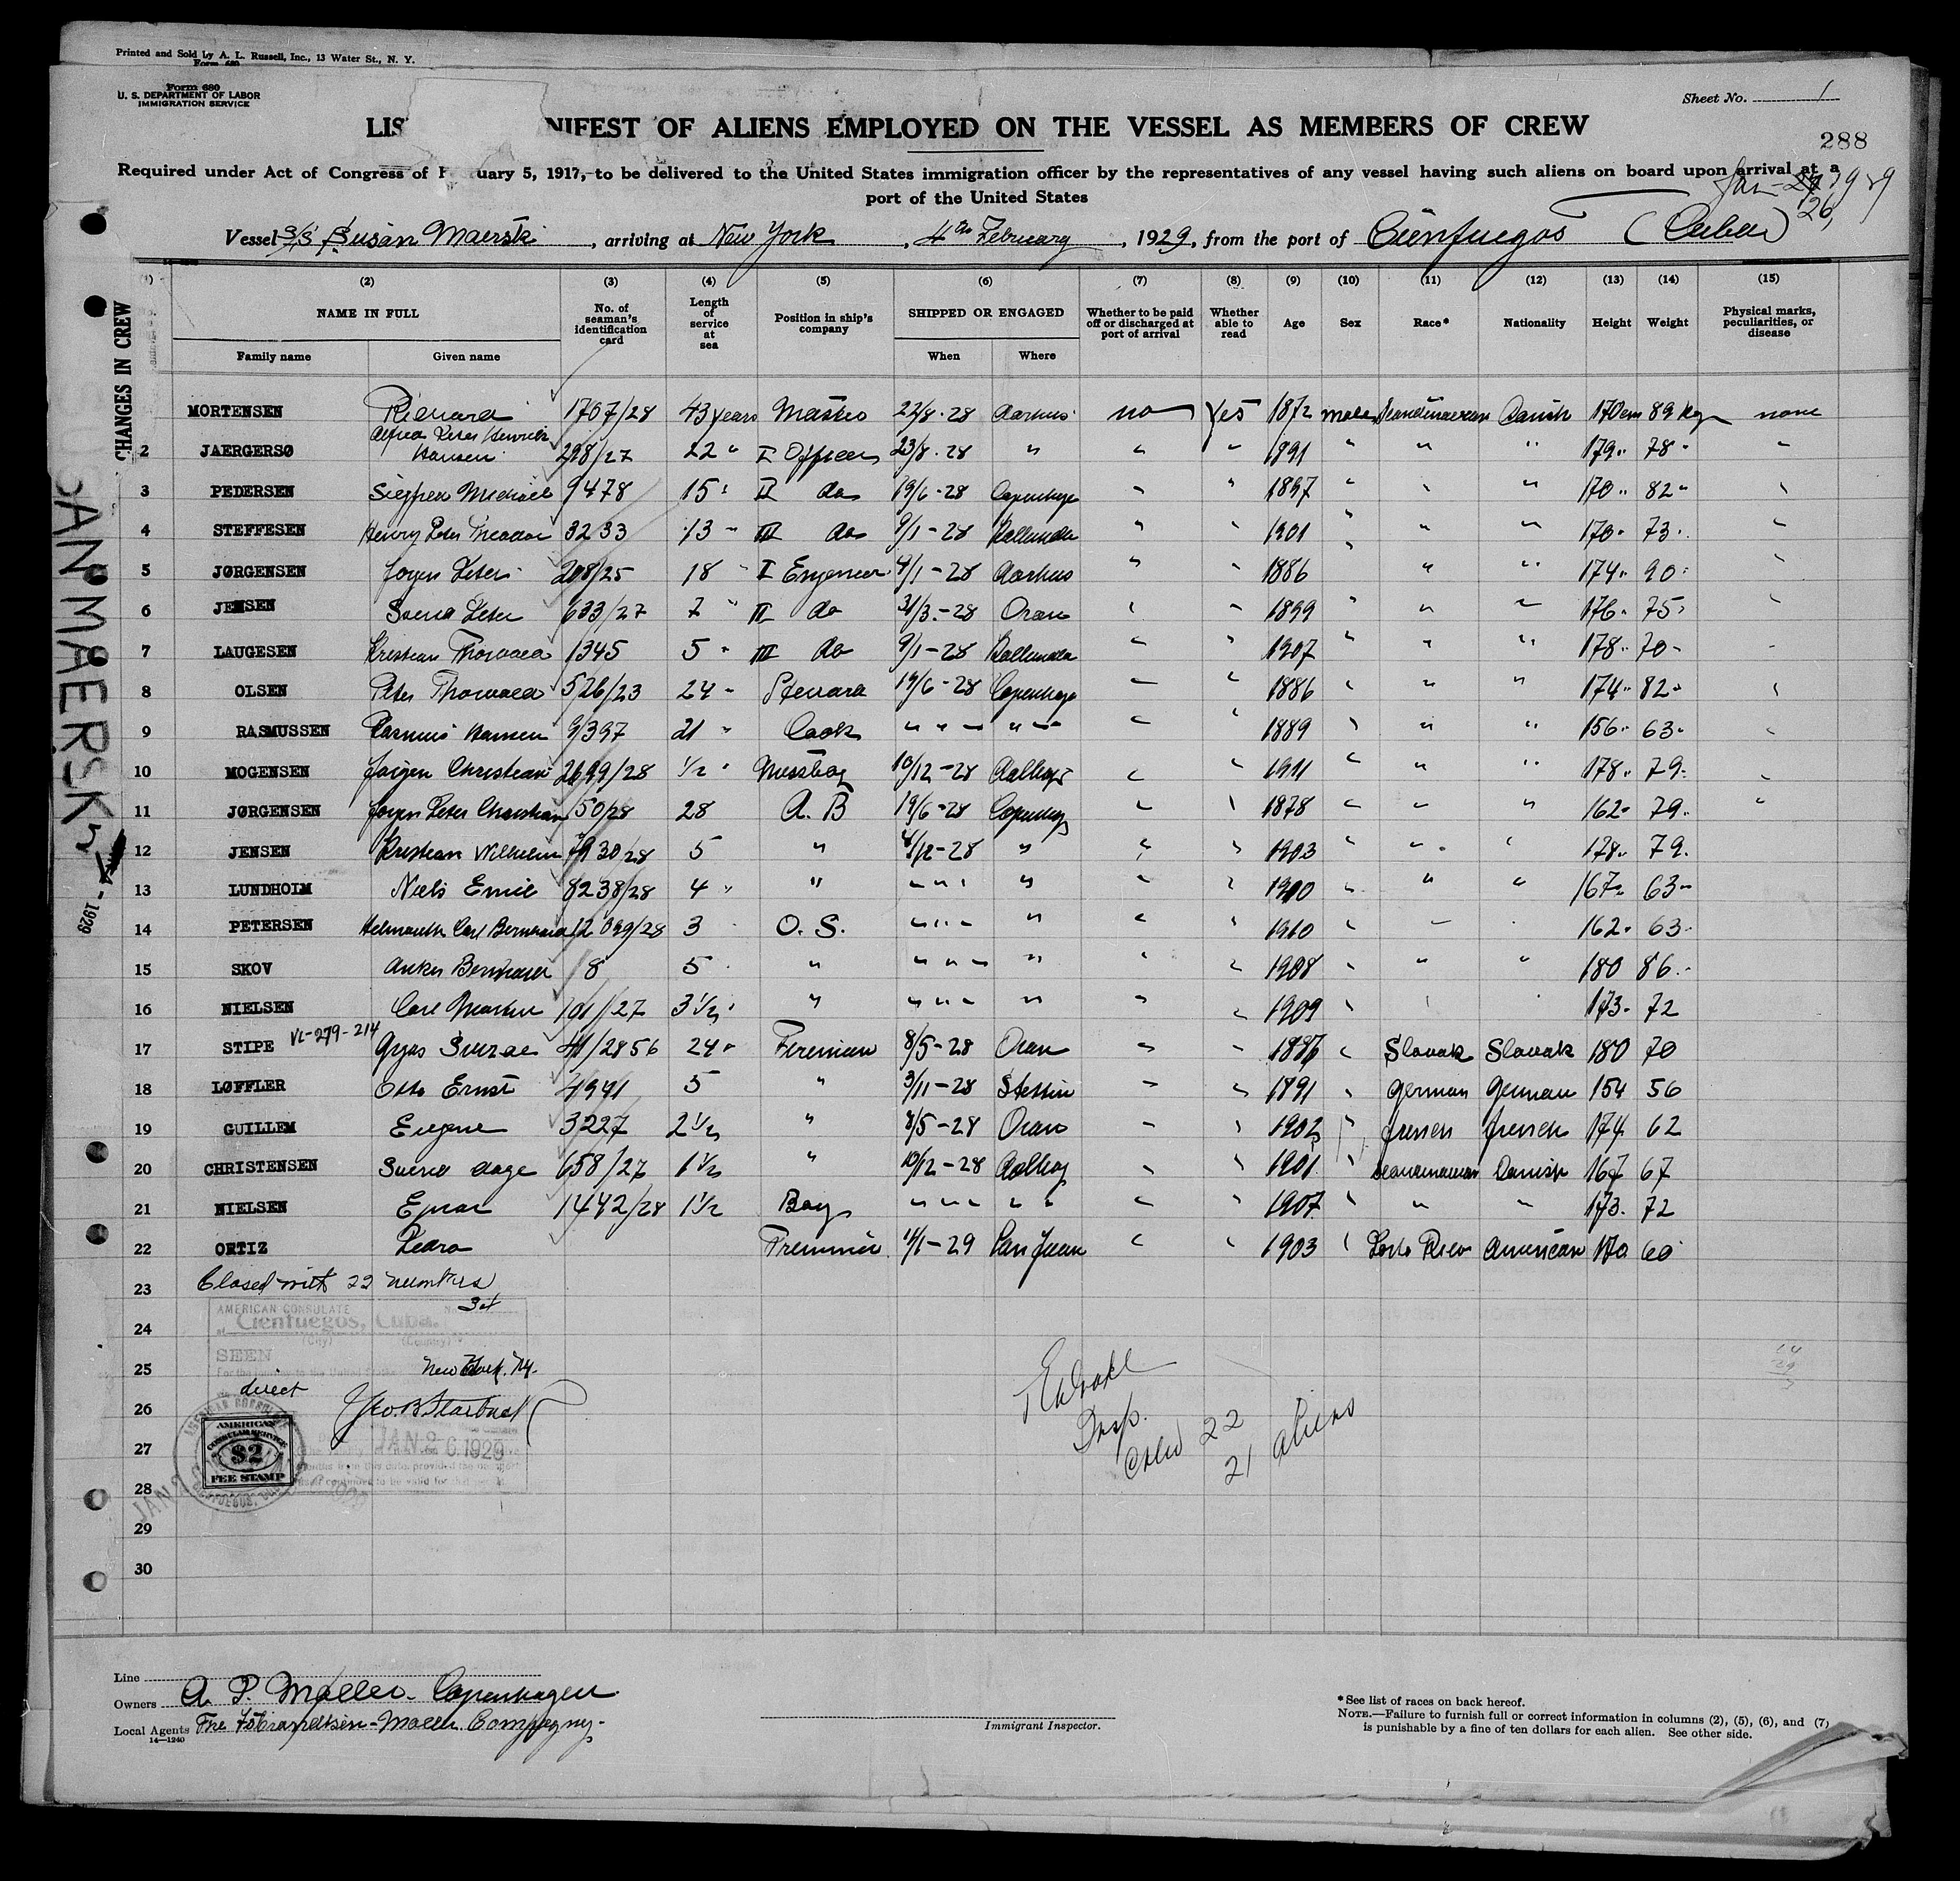 Printed and Sold by A. L. Russell, Inc., 13 Water St., N. Y.
Form 680
Form 680
U. S. DEPARTMENT OF LABOR
IMMIGRATION SERVICE
Sheet No. 1
LIS NIFEST OF ALIENS EMPLOYED ON THE VESSEL AS MEMBERS OF CREW
288
Required under Act of Congress of F uary 5, 1917, to be delivered to the United States immigration officer by the representatives of any vessel having such aliens on board upon arrival at a
port of the United States
Jan- 1929
26,
Vessel S/S Susan Maersk, arriving at New York, 4th February, 1929, from the port of Cienfuegos (Cuba)
CHANGES IN CREW
SAN MAERSK
1929
(1) (2) (3) (4) (5) (6) (7) (8) (9) (10) (11) (12) (13) (14) (15)
NAME IN FULL
Family name Given name
No. of seaman's identification card
Length of service at sea
Position in ship's company
SHIPPED OR ENGAGED
When Where
Whether to be paid off or discharged at port of arrival
Whether able to read
Age Sex Race* Nationality Height Weight
Physical marks, peculiarities, or disease
MORTENSEN Rievard 1707/28 43 years Master 22/8-28 Aarhus no Yes 1872 male Scandinavian Danish 170 cm 89 kg none
2 JAERGERSØ Alfred Peter Henrik Hansen 298/27 22 " I Officer 23/8-28 " " " 1891 " " " 179 " 78 " "
3 PEDERSEN Siegfred Michael 9478 15 " II do 19/6-28 Copenhage " " 1897 " " " 170 " 82 " "
4 STEFFESEN Henry Peter Theodor 3233 13 " III do 9/1-28 Kallundbr " " 1901 " " " 170 " 73 " "
5 JØRGENSEN Jørgen Peter 208/25 18 " I Engeneer 4/1-28 Aarhus " " 1886 " " 174 " 90 " "
6 JENSEN Svend Peter 633/27 7 " II do 31/3-28 Oran " " 1899 " " " 176 " 75 " "
7 LAUGESEN Kristian Thorvald 1345 5 " III do 9/1-28 Kallundbr " " 1907 " " " 178 " 70 " "
8 OLSEN Peter Thorvald 526/23 24 " Steward 19/6-28 Copenhage " " 1886 " " " 174 " 82 " "
9 RASMUSSEN Rasmus Hansen 9/397 21 " Cook " " " " " " " 1889 " " " 156 " 63 " "
10 MOGENSEN Jørgen Christian 2699/28 1/2 " Messboy 10/12-28 Aalborg " " 1911 " " " 178 " 79 " "
11 JØRGENSEN Jørgen Peter Christian 50/28 28 A. B 19/6-28 Copenhag " " 1878 " " " 162 " 79 " "
12 JENSEN Kristian Wilhelm 7930/28 5 " 4/12-28 " " " 1903 " " " 178 " 79.
13 LUNDHOLM Niels Emil 8238/28 4 " " " " " " " " 1910 " " " 167 " 63 "
14 PETERSEN Helmauth Carl Bernhard 12099/28 3 O. S. " " " " " " 1910 " " 162 " 63 "
15 SKOV Anker Bernhard 8 5 " " " " " " " 1908 " " " 180 86 "
16 NIELSEN Carl Martin 101/27 3 1/2 " " " " " " " " 1909 " 173 " 72
VL-279-214
17 STIPE Gryas 41/2856 24 " Fireman 8/5-28 Oran " " 1886 " Slovak Slovak 180 70
18 LØFFLER Otto Ernst 4941 5 " 3/11-28 Stettin " " 1891 " German German 154 56
19 GUILLEM Eugene 3227 2 1/2 " 8/5-28 Oran " " 1902 " french french 174 62
20 CHRISTENSEN Svend Aage 658/27 1 1/2 " 10/12-28 Aalborg " " 1901 " Scandinavian Danish 167 67
21 NIELSEN Ejnar 1442/28 1 1/2 Boy " " " " " " " 1907 " " " 173 " 72
22 ORTIZ Pedro Firemen 14/1-29 San Juan " " 1903 " Porto Rico American 170 60
23 Closed with 22 numbers
24
25
26
27
28
29
30
AMERICAN CONSULATE
at Cienfuegos, Cuba.
(City) (Country)
SEEN
direct New York. N.Y.
Geo. B. Starbuck
JAN 26 1929
AMERICAN
CONSULAR SERVICE
$2
FEE STAMP
Insp.
Crew 22
21 aliens
Line
Owners A. P. Moeller. Copenhagen
Local Agents The Isbrandtsen-Moeller Compagny.
14—1240
Immigrant Inspector.
*See list of races on back hereof.
NOTE.—Failure to furnish full or correct information in columns (2), (5), (6), and (7)
is punishable by a fine of ten dollars for each alien. See other side.